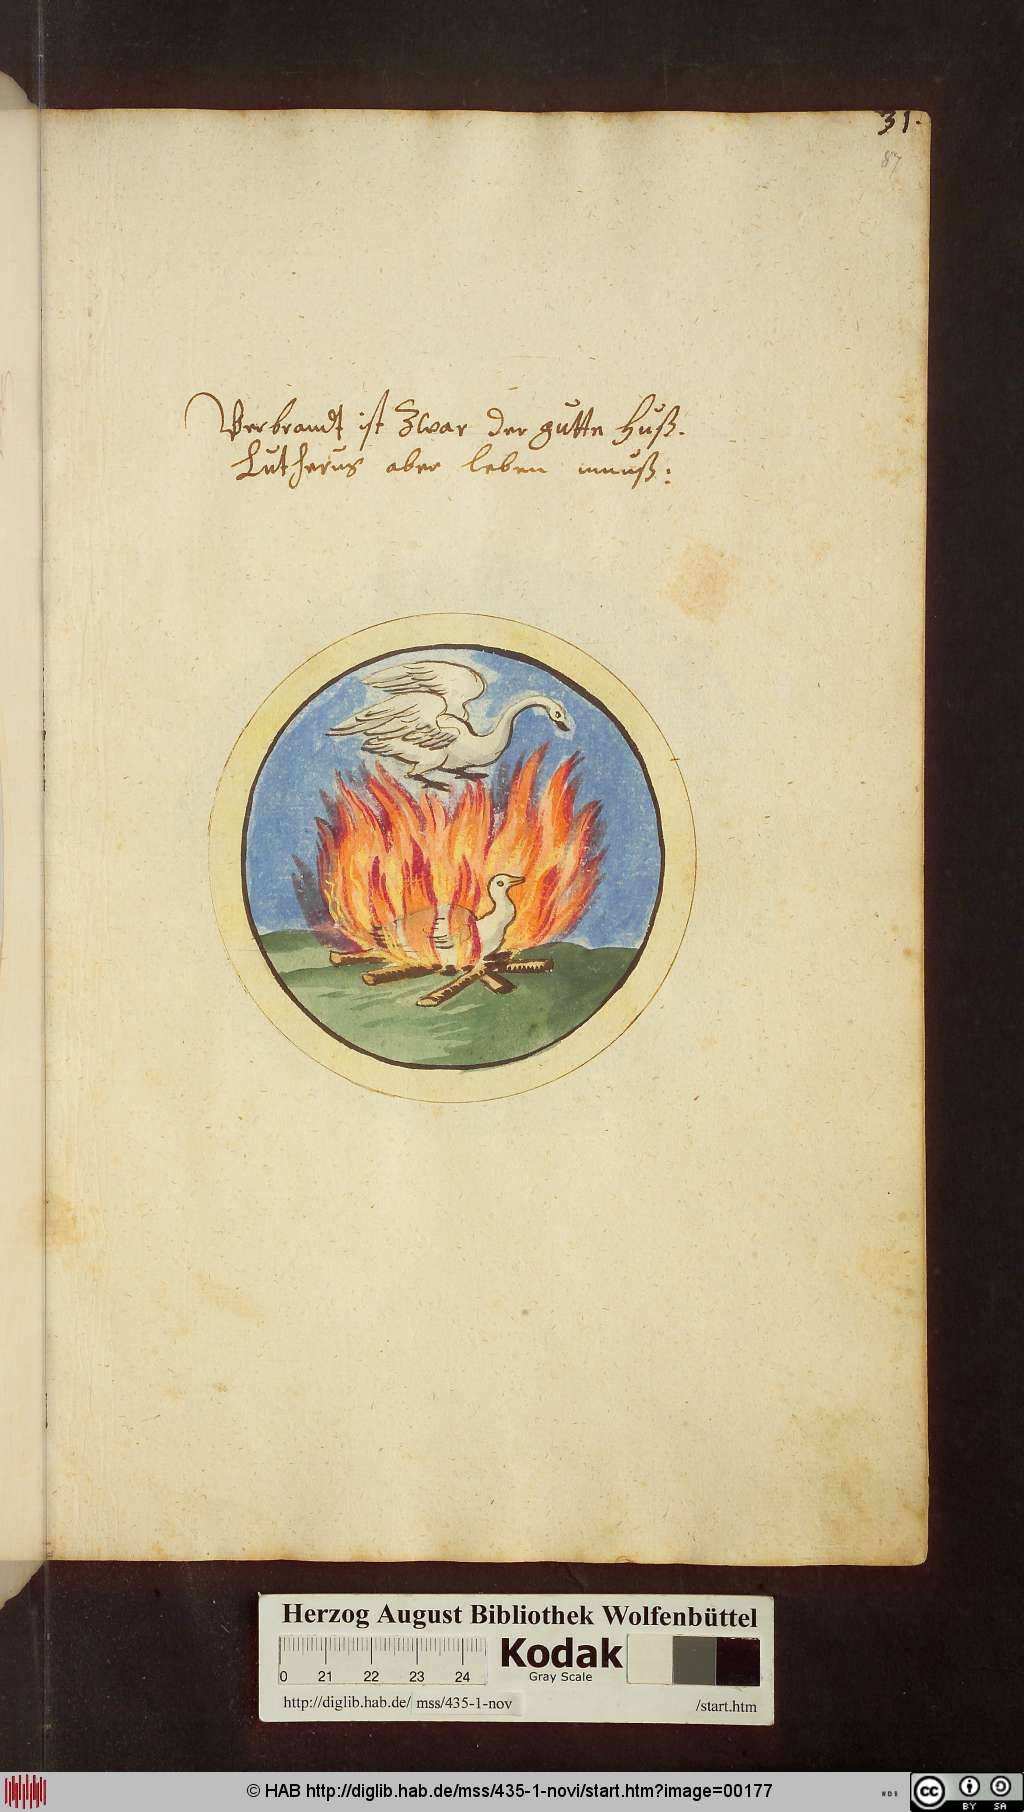 31.
87
Verbrandt ist Zwar der gutte Huß.
Lutherus aber leben muuß:
Herzog August Bibliothek Wolfenbüttel
0 21 22 23 24
Kodak
Gray Scale
http://diglib.hab.de/ mss/435-1-nov /start.htm
© HAB http://diglib.hab.de/mss/435-1-novi/start.htm?image=00177
WDB
cc BY SA